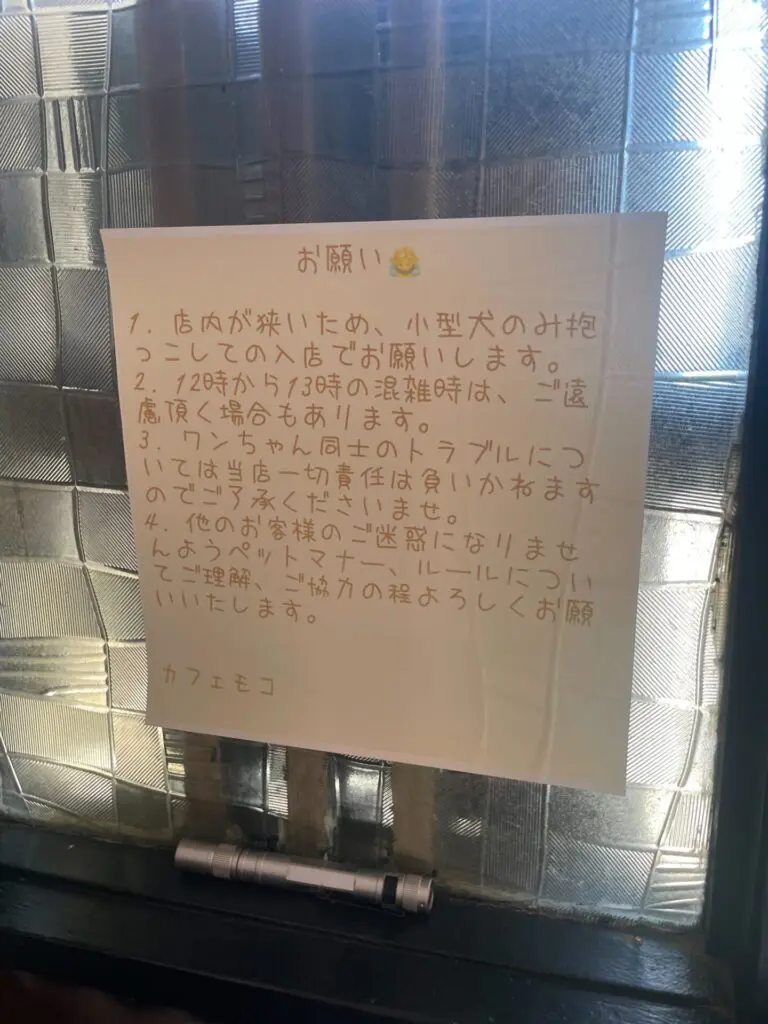 お願い
1. 店内が狭いため、小型犬のみ抱
っこしての入店でお願いします。
2. 12時から13時の混雑時は、ご遠
慮頂く場合もあります。
3. ワンちゃん同士のトラブルにつ
いては当店一切責任は負いかねます
のでご了承くださいませ。
4. 他のお客様のご迷惑になりませ
んようペットマナー、ルールについ
てご理解、ご協力の程よろしくお願
いいたします。
カフェモコ